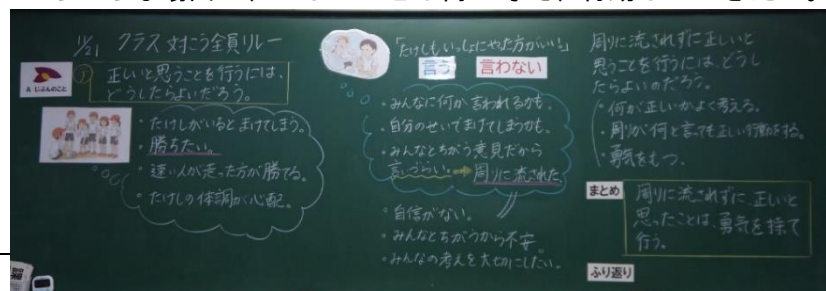 11/21 クラス対こう全員リレー
A じぶんのこと
① 正しいと思うことを行うには、
どうしたらよいだろう。
・たけしがいるとまけてしまう。
・勝ちたい。
・速い人が走った方が勝てる。
・たけしの体調が心配。
「たけしもいっしょにやった方がいい」
言う 言わない
・みんなに何か言われるかも。
・自分のせいでまけてしまうかも。
・みんなとちがう意見だから
言いづらい。→周りに流された
・自信がない。
・みんなとちがうから不安。
・みんなの考えを大切にしたい。
周りに流されずに正しいと
思うことを行うには、どうし
たらよいのだろう。
・何が正しいかよく考える。
・周りが何と言っても正しい行動をする。
・勇気をもつ。
まとめ
周りに流されずに、正しいと
思ったことは、勇気を持て
行う。
ふり返り